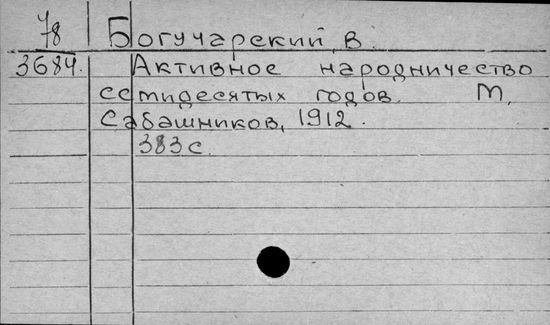 78 Богучарский, В.
3684. Активное народничество
семидесятых годов. М,
Сабашников, 1912.
383 с.